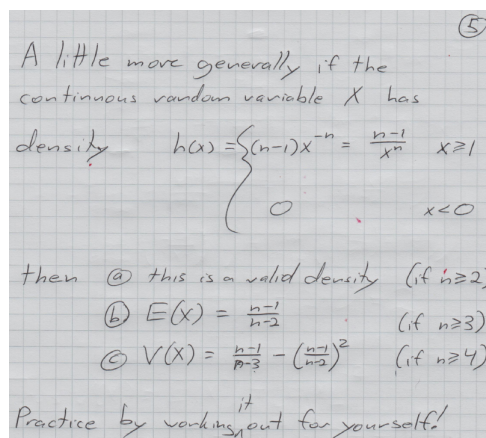 ⑤
A little more generally if the
continuous random variable X has
density h(x) = { (n-1)x^{-n} = \frac{n-1}{x^n} x≥1
0 x<0
then ⓐ this is a valid density (if n≥2)
ⓑ E(X) = \frac{n-1}{n-2} (if n≥3)
ⓒ V(X) = \frac{n-1}{n-3} - (\frac{n-1}{n-2})^2 (if n≥4)
Practice by working it out for yourself!